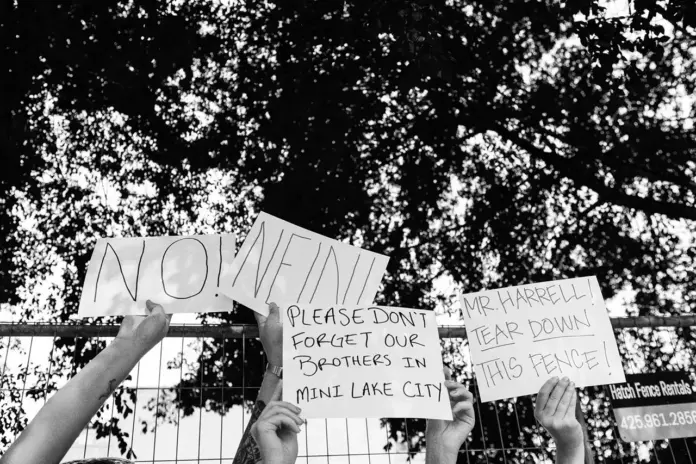 NO!
NEIN!
PLEASE DON'T
FORGET OUR
BROTHERS IN
MINI LAKE CITY
MR. HARRELL!
TEAR DOWN
THIS FENCE!
Hatch Fence Rentals
425.961.2858